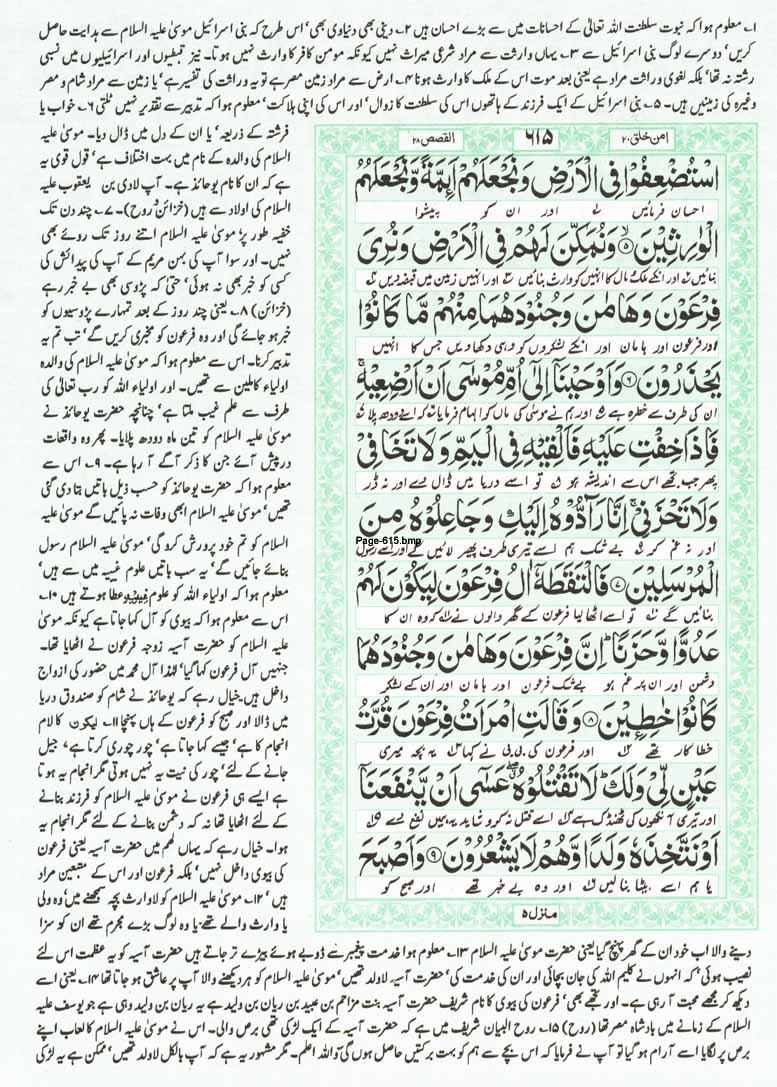 ۱؎ معلوم ہوا کہ نبوت سلطنت اللہ تعالیٰ کے احسانات میں سے بڑے احسان ہیں ۲؎ دینی بھی دنیاوی بھی، اس طرح کہ بنی اسرائیل موسیٰ علیہ السلام سے ہدایت حاصل
کریں، دوسرے لوگ بنی اسرائیل سے ۳؎ یہاں وارثت سے مراد شرعی میراث نہیں کیونکہ مومن کافر کا وارث نہیں ہوتا۔ نیز قبطیوں اور اسرائیلیوں میں نسبی
رشتہ نہ تھا، بلکہ لغوی وراثت مراد ہے یعنی بعد موت اس کے ملک کا وارث ہونا ۴؎ ارض سے مراد زمین مصر ہے تو یہ وراثت کی تفسیر ہے، یا زمین سے مراد شام و مصر
وغیرہ کی زمینیں ہیں۔ ۵؎ بنی اسرائیل کے ایک فرزند کے ہاتھوں اس کی سلطنت کا زوال، اور اس کی اپنی ہلاکت، معلوم ہوا کہ تدبیر سے تقدیر نہیں ٹلتی ۶؎ خواب یا
فرشتہ کے ذریعہ، یا ان کے دل میں ڈال دیا۔ موسیٰ علیہ
السلام کی والدہ کے نام میں بہت اختلاف ہے، قول قوی یہ
ہے کہ ان کا نام یوحانذ ہے۔ آپ لاوی بن یعقوب علیہ
السلام کی اولاد سے ہیں (خزائن، روح)۔ ۷؎ چند دن تک
خفیہ طور پر، موسیٰ علیہ السلام اتنے روز تک روئے بھی
نہیں۔ اور سوا آپ کی بہن مریم کے آپ کی پیدائش کی
کسی کو خبر بھی نہ ہوئی، حتیٰ کہ پڑوسی بھی بے خبر رہے
(خزائن) ۸؎ یعنی چند روز کے بعد تمہارے پڑوسیوں کو
خبر ہو جائے گی اور وہ فرعون کو مخبری کریں گے، تب تم یہ
تدبیر کرنا۔ اس سے معلوم ہوا کہ موسیٰ علیہ السلام کی والدہ
اولیاء کاملین سے تھیں۔ اور اولیاء اللہ کو رب تعالیٰ کی
طرف سے علم غیب ملتا ہے، چنانچہ حضرت یوحانذ نے
موسیٰ علیہ السلام کو تین ماہ دودھ پلایا۔ پھر وہ واقعات
درپیش آئے جن کا ذکر آگے آ رہا ہے۔ ۹؎ اس سے
معلوم ہوا کہ حضرت یوحانذ کو حسب ذیل باتیں بتا دی گئی
تھیں، موسیٰ علیہ السلام ابھی وفات نہ پائیں گے موسیٰ علیہ
السلام کو تم خود پرورش کرو گی، موسیٰ علیہ السلام رسول
بنائے جائیں گے، یہ سب باتیں علوم غیبیہ میں سے ہیں،
معلوم ہوا کہ اولیاء اللہ کو علوم غیبیہ عطا ہوتے ہیں ۱۰؎
اس سے معلوم ہوا کہ بیوی کو آل کہا جاتا ہے کیونکہ موسیٰ
علیہ السلام کو حضرت آسیہ زوجہ فرعون نے اٹھایا تھا۔
جنہیں آل فرعون کہا گیا، لہٰذا آل محمد میں حضور کی ازواج
داخل ہیں۔ خیال رہے کہ یوحانذ نے شام کو صندوق دریا
میں ڈالا اور صبح کو فرعون کے ہاں پہنچا ۱۱؎ لیکون کا لام
انجام کا ہے، جیسے کہا جاتا ہے، چور چوری کرتا ہے، جیل
جانے کے لئے، چور کی نیت یہ نہیں ہوتی مگر انجام یہ ہوتا
ہے ایسے ہی فرعون نے موسیٰ علیہ السلام کو فرزند بنانے
کے لئے اٹھایا تھا نہ کہ دشمن بنانے کے لئے مگر انجام یہ
ہوا۔ خیال رہے کہ یہاں لھم میں حضرت آسیہ یعنی فرعون
کی بیوی داخل نہیں، بلکہ فرعون اور اس کے متبعین مراد
ہیں، ۱۲؎ موسیٰ علیہ السلام کو لاوارث بچہ سمجھنے میں، وہ ولی
یا وارث والے تھے، یا وہ لوگ بڑے مجرم تھے ان کو سزا
امن خلق ۲۰
۶۱۵
القصص ۲۸
اسْتُضْعِفُوْا فِی الْاَرْضِ وَنَجْعَلَهُمْ اَئِمَّةً وَّنَجْعَلَهُمُ
احسان فرمائیں اور ان کو پیشوا
الْوٰرِثِیْنَ ۝۵ وَنُمَكِّنَ لَهُمْ فِی الْاَرْضِ وَنُرِیَ
بنائیں اور انکے ملک مال کا انہیں کو وارث بنائیں اور انہیں زمین میں قبضہ دیں
فِرْعَوْنَ وَهَامٰنَ وَجُنُوْدَهُمَا مِنْهُمْ مَّا كَانُوْا
اور فرعون اور ہامان اور انکے لشکروں کو وہی دکھا دیں جس کا انہیں
یَحْذَرُوْنَ ۝۶ وَاَوْحَیْنَاۤ اِلٰۤی اُمِّ مُوْسٰۤی اَنْ اَرْضِعِیْهِ ۚ
ان کی طرف سے خطرہ ہے اور ہم نے موسیٰ کی ماں کو الہام فرمایا کہ اسے دودھ پلا
فَاِذَا خِفْتِ عَلَیْهِ فَاَلْقِیْهِ فِی الْیَمِّ وَلَا تَخَافِیْ
پھر جب تجھے اس سے اندیشہ ہو تو اسے دریا میں ڈال دے اور نہ ڈر
وَلَا تَحْزَنِیْ ۚ اِنَّا رَآدُّوْهُ اِلَیْكِ وَجَاعِلُوْهُ مِنَ
اور نہ غم کر بے شک ہم اسے تیری طرف پھیر لائیں گے اور اسے رسول
Page-615.bmp
الْمُرْسَلِیْنَ ۝۷ فَالْتَقَطَهٗۤ اٰلُ فِرْعَوْنَ لِیَكُوْنَ لَهُمْ
بنائیں گے تو اسے اٹھا لیا فرعون کے گھر والوں نے کہ وہ ان کا
عَدُوًّا وَّحَزَنًا ؕ اِنَّ فِرْعَوْنَ وَهَامٰنَ وَجُنُوْدَهُمَا
دشمن اور ان پر غم ہو بے شک فرعون اور ہامان اور ان کے لشکر
كَانُوْا خٰطِـِٕیْنَ ۝۸ وَقَالَتِ امْرَاَتُ فِرْعَوْنَ قُرَّتُ
خطا کار تھے اور فرعون کی بی بی نے کہا یہ بچہ میری
عَیْنٍ لِّیْ وَلَكَ ؕ لَا تَقْتُلُوْهُ ۖ عَسٰۤی اَنْ یَّنْفَعَنَاۤ
اور تیری آنکھوں کی ٹھنڈک ہے اسے قتل نہ کرو شاید یہ ہمیں نفع دے
اَوْ نَتَّخِذَهٗ وَلَدًا وَّهُمْ لَا یَشْعُرُوْنَ ۝۹ وَاَصْبَحَ
یا ہم اسے بیٹا بنا لیں اور وہ بے خبر تھے اور صبح کو
منزل ۵
دینے والا اب خود ان کے گھر پہنچ گیا یعنی حضرت موسیٰ علیہ السلام ۱۳؎ معلوم ہوا خدمت پیغمبر سے ڈوبے ہوئے بیڑے تر جاتے ہیں حضرت آسیہ کو یہ عظمت اس لئے
نصیب ہوئی، کہ انہوں نے کلیم اللہ کی جان بچائی اور ان کی خدمت کی، حضرت آسیہ لاولد تھیں، موسیٰ علیہ السلام کو ہر دیکھنے والا آپ پر عاشق ہو جاتا تھا ۱۴؎ یعنی اسے
دیکھ کر مجھے محبت آ رہی ہے۔ اور تجھے بھی، فرعون کی بیوی کا نام شریف حضرت آسیہ بنت مزاحم بن عبید بن ریان بن ولید ہے یہ ریان بن ولید وہی ہے جو یوسف علیہ
السلام کے زمانے میں بادشاہ مصر تھا (روح) ۱۵؎ روح البیان شریف میں ہے کہ حضرت آسیہ کے ایک لڑکی تھی برص والی۔ اس نے موسیٰ علیہ السلام کا لعاب اپنے
برص پر لگایا اسے آرام ہو گیا تو آپ نے فرمایا کہ اس بچے سے ہم کو بہت برکتیں حاصل ہوں گی واللہ اعلم۔ مگر مشہور یہ ہے کہ آپ بالکل لاولد تھیں، ممکن ہے یہ لڑکی